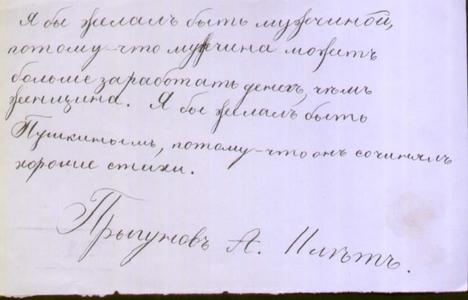 Я бы желалъ быть мужчиной,
потому-что мужчина можетъ
больше заработать денегъ, чѣмъ
женщина. Я бы желалъ быть
Пушкинымъ, потому-что онъ сочинялъ
хорошие стихи.
Прыгуновъ А. 11 лѣтъ.